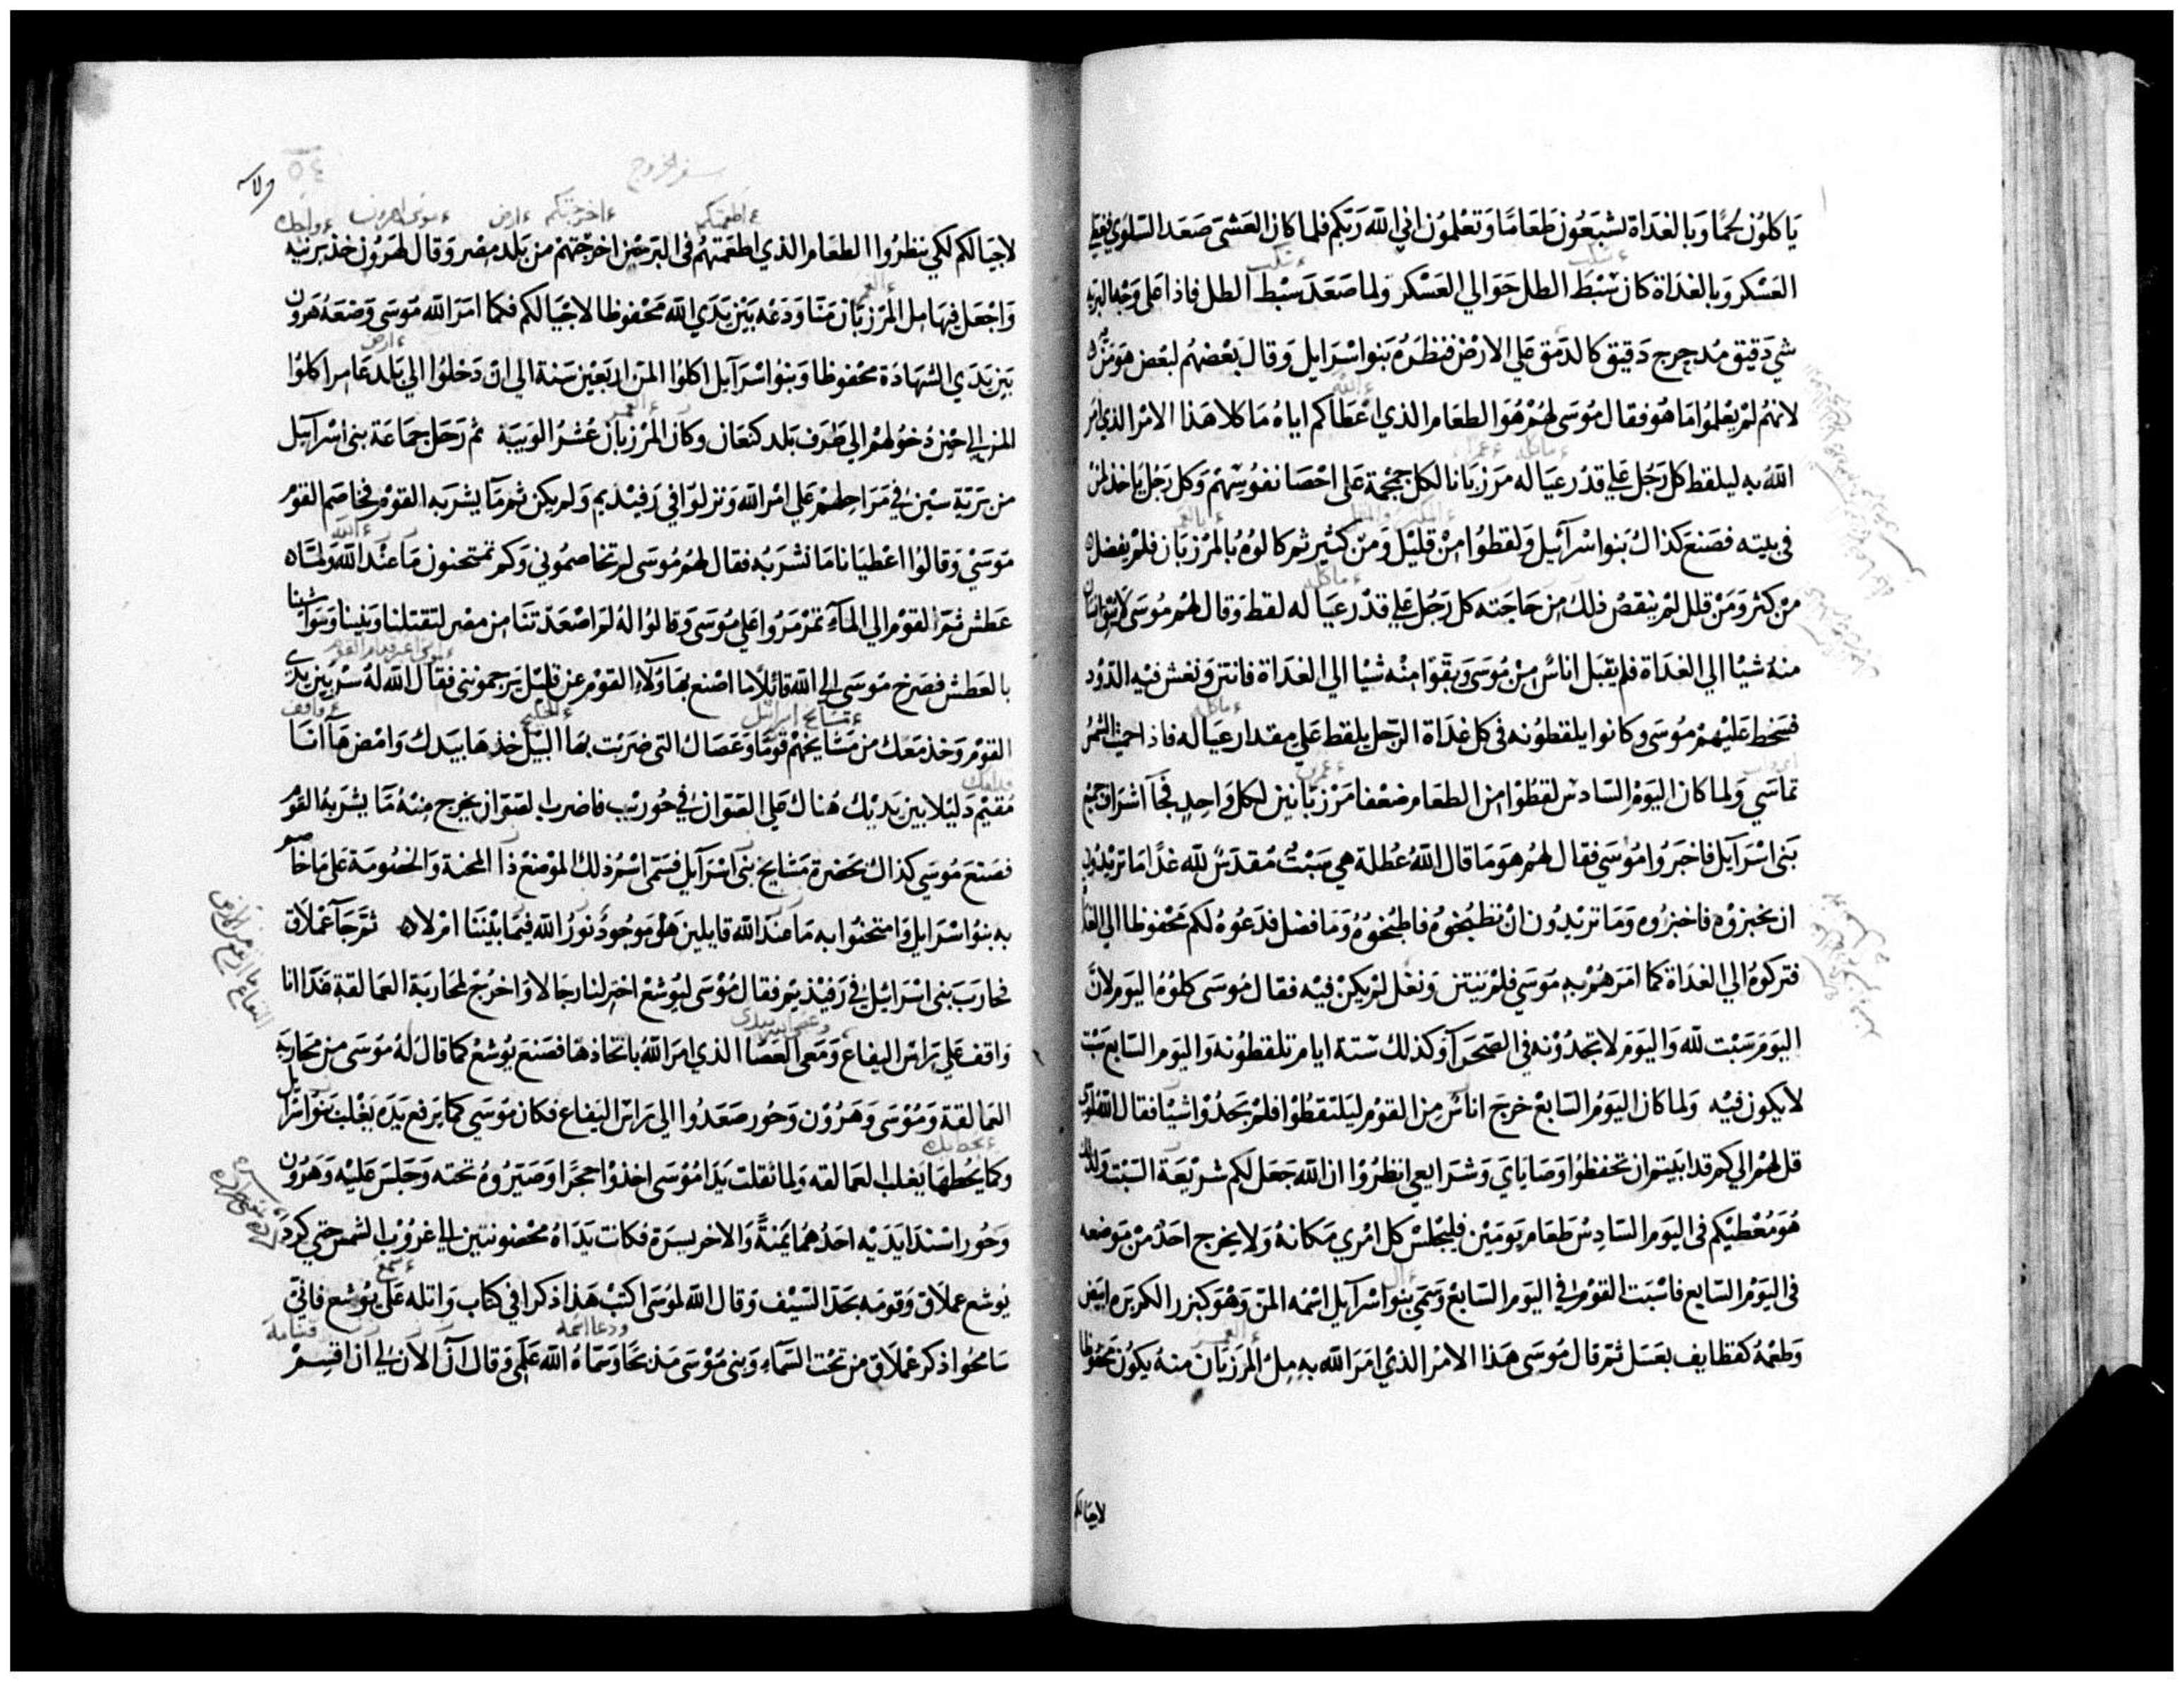 ياكلون لحمًا وبالغداة تشبعون طعامًا وتعلمون اني الله ربكم فلما كان العشى صعد السلوي فغطي
العسكر وبالغداة كان سبط الطل حوالي العسكر ولما صعد سبط الطل فاذا على وجه البريه
شي دقيق مدحرج دقيق كالدمق علي الارض فنظره بنو اسرايل وقال بعضهم لبعض هو من
لانهم لم يعلموا ما هو فقال موسى لهم هو الطعام الذي اعطاكم اياه ماكلا هذا الامر الذي امر
الله به ليلقط كل رجل علي قدر عياله مرزبانا لكل جمجمة على احصا نفوسهم وكل رجل ياخذ لمن
في بيته فصنع كذاك بنو اسرآئيل ولقطوا من قليل ومن كثير ثم كالوه بالمرزبان فلم يفضل
من كثر ومن قلل لم ينقص ذلك من حاجته كل رجل علي قدر عياله لقط وقال لهم موسى لا يبق انسان
منه شيا الي الغداة فلم يقبل اناس من موسى وبقوا منه شيا الي الغداة فانتن ونغش فيه الدود
فسخط عليهم موسى وكانوا يلقطونه في كل غداة الرجل يلقط علي مقدار عياله فاذا حميت الشمس
تماسي ولما كان اليوم السادس لقطوا من الطعام ضعفا مرزبانين لكل واحد فجآ اشراف جميع
بني اسرآيل فاخبروا موسي فقال لهم هو ما قال الله عطلة هي سبت مقدس لله غدًا ما تريدون
ان تخبزوه فاخبزوه وما تريدون ان تطبخوه فاطبخوه وما فضل فدعوه لكم محفوظا الي الغد
فتركوه الي الغداة كما امرهم به موسي فلم ينتن ونغل لم يكن فيه فقال موسى كلوه اليوم لان
اليوم سبت لله واليوم لا تجدونه في الصحرآ وكذلك ستة ايام تلقطونه واليوم السابع سبت
لا يكون فيه ولما كان اليوم السابع خرج اناس من القوم ليلتقطوا فلم يجدوا شيا فقال الله لموسي
قل لهم الي كم قد ابيتم ان تحفظوا وصاياي وشرايعي انظروا ان الله جعل لكم شريعة السبت ولذلك
هو معطيكم في اليوم السادس طعام يومين فليجلس كل امري مكانه ولا يخرج احد من موضعه
في اليوم السابع فاسبت القوم في اليوم السابع وسمي بنو اسرآيل اسمه المن وهو كبزر الكزبره ابيض
وطعمه كقطايف بعسل ثم قال موسى هذا الامر الذي امر الله به مل المرزبان منه يكون محفوظا
لاجيالكم
سفر الخروج
٥٤
لاجيالكم لكي ينظروا الطعام الذي اطعمتهم في البر حين اخرجتهم من بلد مصر وقال لهرون خذ برنيه
واجعل فيها مل المرزبان منا ودعه بين يدي الله محفوظا لاجيالكم فكما امر الله موسى وضعه هرون
بين يدي الشهادة محفوظا وبنو اسرآيل اكلوا المن اربعين سنة الي ان دخلوا الي بلد عامر اكلوا
المن الي حين دخولهم الي طرف بلد كنعان وكان المرزبان عشر الويبة ثم رحل جماعة بني اسرآيل
من برية سين في مراحلهم علي امر الله ونزلوا في رفيديم ولم يكن ثم مآ يشربه القوم فخاصم القوم
موسي وقالوا اعطيانا ما نشربه فقال لهم موسى لم تخاصموني وكم تمتحنون ما عند الله ولما
عطش ثم القوم الي المآء تمرمروا علي موسى وقالوا له لم اصعدتنا من مصر لتقتلنا وبنينا ومواشينا
بالعطش فصرخ موسى الى الله قائلًا ما اصنع بهاولآء القوم عن قليل يرجمونني فقال الله له سر بين يدي
القوم وخذ معك من مشايخهم قومًا وعصاك التي ضربت بها النيل خذها بيدك وامض هآ انا
مقيم دليلا بين يديك هناك علي الصوان في حوريب فاضرب الصوان يخرج منه ما يشربه القوم
فصنع موسي كذاك بحضرة مشايخ بني اسرآيل فسمى اسم ذلك الموضع ذا المحنة والخصومة على ما خاصم
به بنو اسرايل وامتحنوا به ما عند الله قايلين هل موجود نور الله فيما بيننا ام لا ثم جآ عملاق
فحارب بني اسرائيل في رفيذيم فقال موسى ليوشع اختر لنا رجالا واخرج لمحاربة العمالقة غدا انا
واقف علي راس اليفاع ومعي العصا الذي امر الله باتخاذها فصنع يوشع كما قال له موسى من محاربة
العمالقة وموسى وهرون وحور صعدوا الي راس اليفاع فكان موسي كما يرفع يده يغلب بنو اسرايل
وكما يحطها يغلب العمالقه ولما ثقلت يدا موسى اخذوا حجرًا وصيروه تحته وجلس عليه وهرون
وحور اسندا يديه احدهما يمنةً والاخر يسرة فكانت يداه محضونتين الي غروب الشمس حتي كرد
يوشع عملاق وقومه بحد السيف وقال الله لموسى اكتب هذا ذكرا في كتاب واتله على يوشع فاني
سامحوا ذكر عملاق من تحت السماء وبني موسى مذبحا وسماه الله علمي وقال آن الآن لي ان اقسم